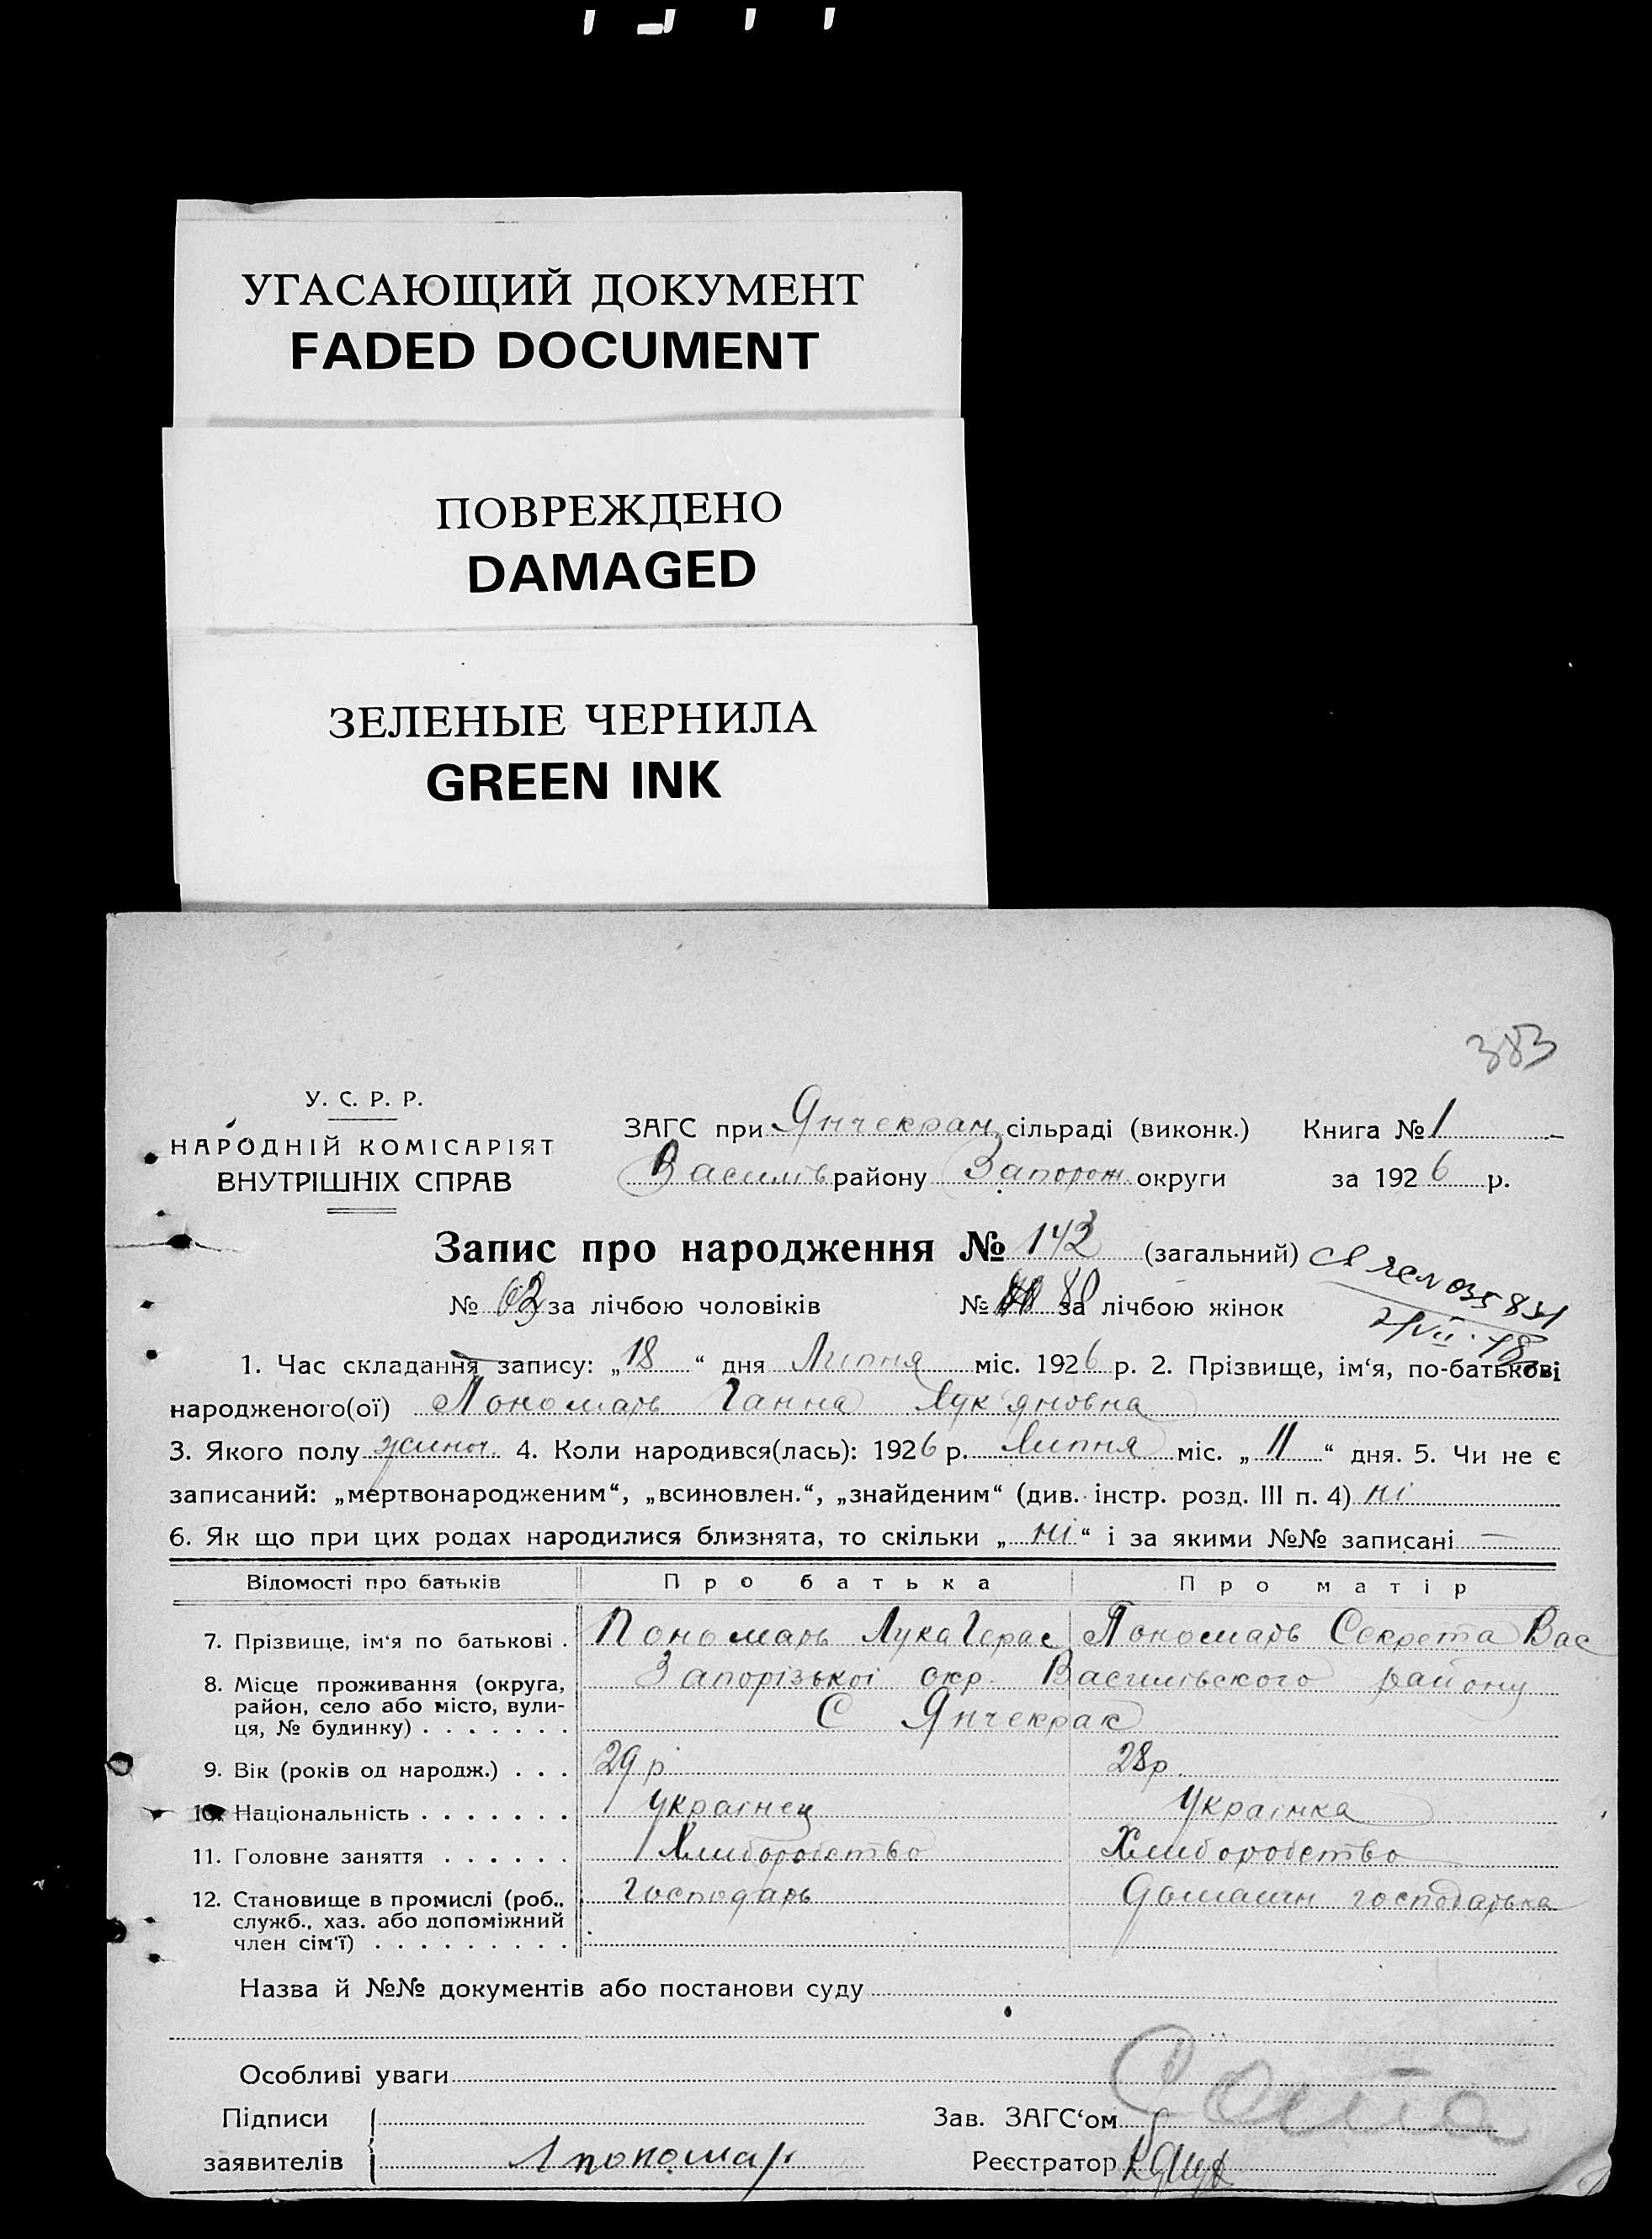 УГАСАЮЩИЙ ДОКУМЕНТ
FADED DOCUMENT
ПОВРЕЖДЕНО
DAMAGED
ЗЕЛЕНЫЕ ЧЕРНИЛА
GREEN INK
383
У. С. Р. Р.
НАРОДНІЙ КОМІСАРІЯТ
ВНУТРІШНІХ СПРАВ
ЗАГС при Янчекрак сільраді (виконк.) Книга № 1
Василів району Запорож округи за 1926 р.
Запис про народження № 143 (загальний)
№ 63 за лічбою чоловіків № 80 за лічбою жінок
1. Час складання запису: „18“ дня Липня міс. 1926 р. 2. Прізвище, ім‘я, по-батькові
народженого(ої) Пономарь Ганна Лук'яновна
3. Якого полу жиноч. 4. Коли народився(лась): 1926 р. Липня міс. „11“ дня. 5. Чи не є
записаний: „мертвонародженим“, „всиновлен.“, „знайденим“ (див. інстр. розд. III п. 4) ні
6. Як що при цих родах народилися близнята, то скільки „ні“ і за якими №№ записані —
Відомості про батьків Про батька Про матір
7. Прізвище, ім‘я по батькові . Пономарь Лука Герас Пономарь Секрета Вас
8. Місце проживання (округа, район, село або місто, вулиця, № будинку) . . . . . . . Запорізькоі окр. Василівского району
С Янчекрак
9. Вік (років од народж.) . . . 29 р 28 р.
10. Національність . . . . . . . Украінец Украінка
11. Головне заняття . . . . . . Хлиборобство Хлиборобство
12. Становище в промислі (роб., служб., хаз. або допоміжний член сім‘ї) . . . . . . . . . Господарь Домашн господарька
Назва й №№ документів або постанови суду
Особливі уваги
Підписи Зав. ЗАГС‘ом
заявителів Л пономар Реєстратор